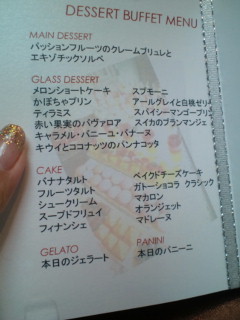 DESSERT BUFFET MENU
MAIN DESSERT
パッションフルーツのクレームブリュレと
エキゾチックソルベ
GLASS DESSERT
メロンショートケーキ
かぼちゃプリン
ティラミス
赤い果実のババロア
キャラメル・バニーユ・バナーヌ
キウイとココナッツのパンナコッタ
スプモーニ
アールグレイと白桃ゼリー
スパイシーマンゴープリン
スイカのブランマンジェ
CAKE
バナナタルト
フルーツタルト
シュークリーム
スープドフリュイ
フィナンシェ
ベイクドチーズケーキ
ガトーショコラ クラシック
マカロン
オランジェット
マドレーヌ
GELATO
本日のジェラート
PANINI
本日のパニーニ